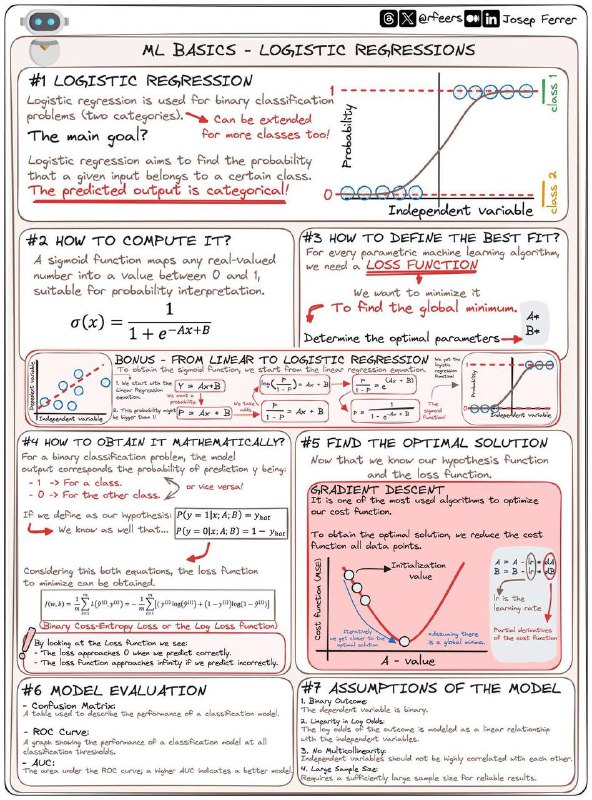 @rfeers
Josep Ferrer
ML BASICS - LOGISTIC REGRESSIONS
#1 LOGISTIC REGRESSION
Logistic regression is used for binary classification
problems (two categories).
Can be extended
for more classes too!
The main goal?
Logistic regression aims to find the probability
that a given input belongs to a certain class.
The predicted output is categorical!
1
0
Probability
Independent variable
class 1
class 2
#2 HOW TO COMPUTE IT?
A sigmoid function maps any real-valued
number into a value between 0 and 1,
suitable for probability interpretation.
σ(x) = 1 / (1 + e^(-Ax+B))
#3 HOW TO DEFINE THE BEST FIT?
For every parametric machine learning algorithm,
we need a LOSS FUNCTION
We want to minimize it
To find the global minimum.
Determine the optimal parameters
A*
B*
BONUS - FROM LINEAR TO LOGISTIC REGRESSION
To obtain the sigmoid function, we start from the linear regression equation.
Dependent variable
Independent variable
1. We start with the
Linear Regression
equation.
Y = Ax+B
We want a
probability
2. This probability might
be bigger than 1!
P = Ax + B
We take
odds
log(P / (1 - P)) = Ax + B
P / (1 - P) = Ax + B
P / (1 - P) = e^(Ax + B)
P = 1 / (1 - e^(-Ax+B))
The
sigmoid
function!
We get the
logistic
regression
function!
Probability
Independent variable
#4 HOW TO OBTAIN IT MATHEMATICALLY?
For a binary classification problem, the model
output corresponds the probability of prediction y being:
- 1 -> For a class.
- 0 -> For the other class.
or vice versa!
If we define as our hypothesis:
P(y = 1|x; A; B) = y_hat
We know as well that...
P(y = 0|x; A; B) = 1 - y_hat
Considering this both equations, the loss function
to minimize can be obtained.
J(w, b) = 1/m ∑ L(ŷ⁽ⁱ⁾, y⁽ⁱ⁾) = - 1/m ∑ [(y⁽ⁱ⁾ log(ŷ⁽ⁱ⁾) + (1 - y⁽ⁱ⁾) log(1 - ŷ⁽ⁱ⁾)]
(Binary Coss-Entropy Loss or the Log Loss function)
!
By looking at the Loss function we see:
- The loss approaches 0 when we predict correctly.
- The loss function approaches infinity if we predict incorrectly.
#5 FIND THE OPTIMAL SOLUTION
Now that we know our hypothesis function
and the loss function.
GRADIENT DESCENT
It is one of the most used algorithms to optimize
our cost function.
To obtain the optimal solution, we reduce the cost
function all data points.
Cost function (MSE)
Initialization
value
Iteratively
we get closer to the
optimal solution
*Assuming there
is a global minima.
A - value
A = A - lr * dA
B = B - lr * dB
lr is the
learning rate
Partial derivatives
of the cost function
#6 MODEL EVALUATION
- Confusion Matrix:
A table used to describe the performance of a classification model.
- ROC Curve:
A graph showing the performance of a classification model at all
classification thresholds.
- AUC:
The area under the ROC curve; a higher AUC indicates a better model.
#7 ASSUMPTIONS OF THE MODEL
1. Binary Outcome:
The dependent variable is binary.
2. Linearity in Log Odds:
The log odds of the outcome is modeled as a linear relationship
with the independent variables.
3. No Multicollinearity:
Independent variables should not be highly correlated with each other.
4. Large Sample Size:
Requires a sufficiently large sample size for reliable results.